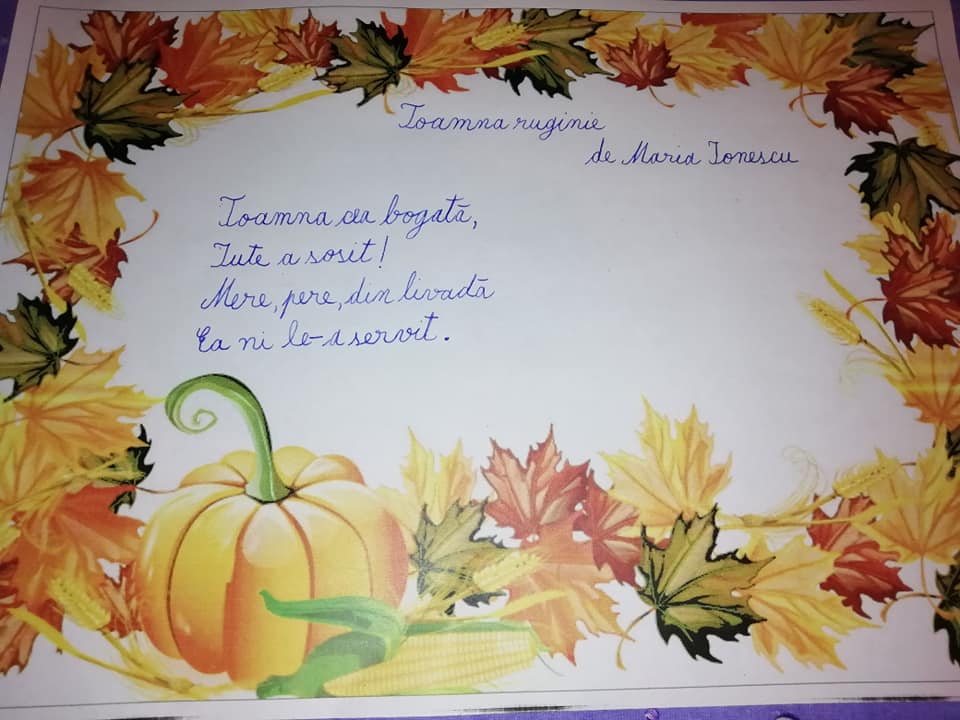 Toamna ruginie
de Maria Ionescu
Toamna cea bogată,
Iute a sosit!
Mere, pere, din livadă
Ea ni le-a servit.